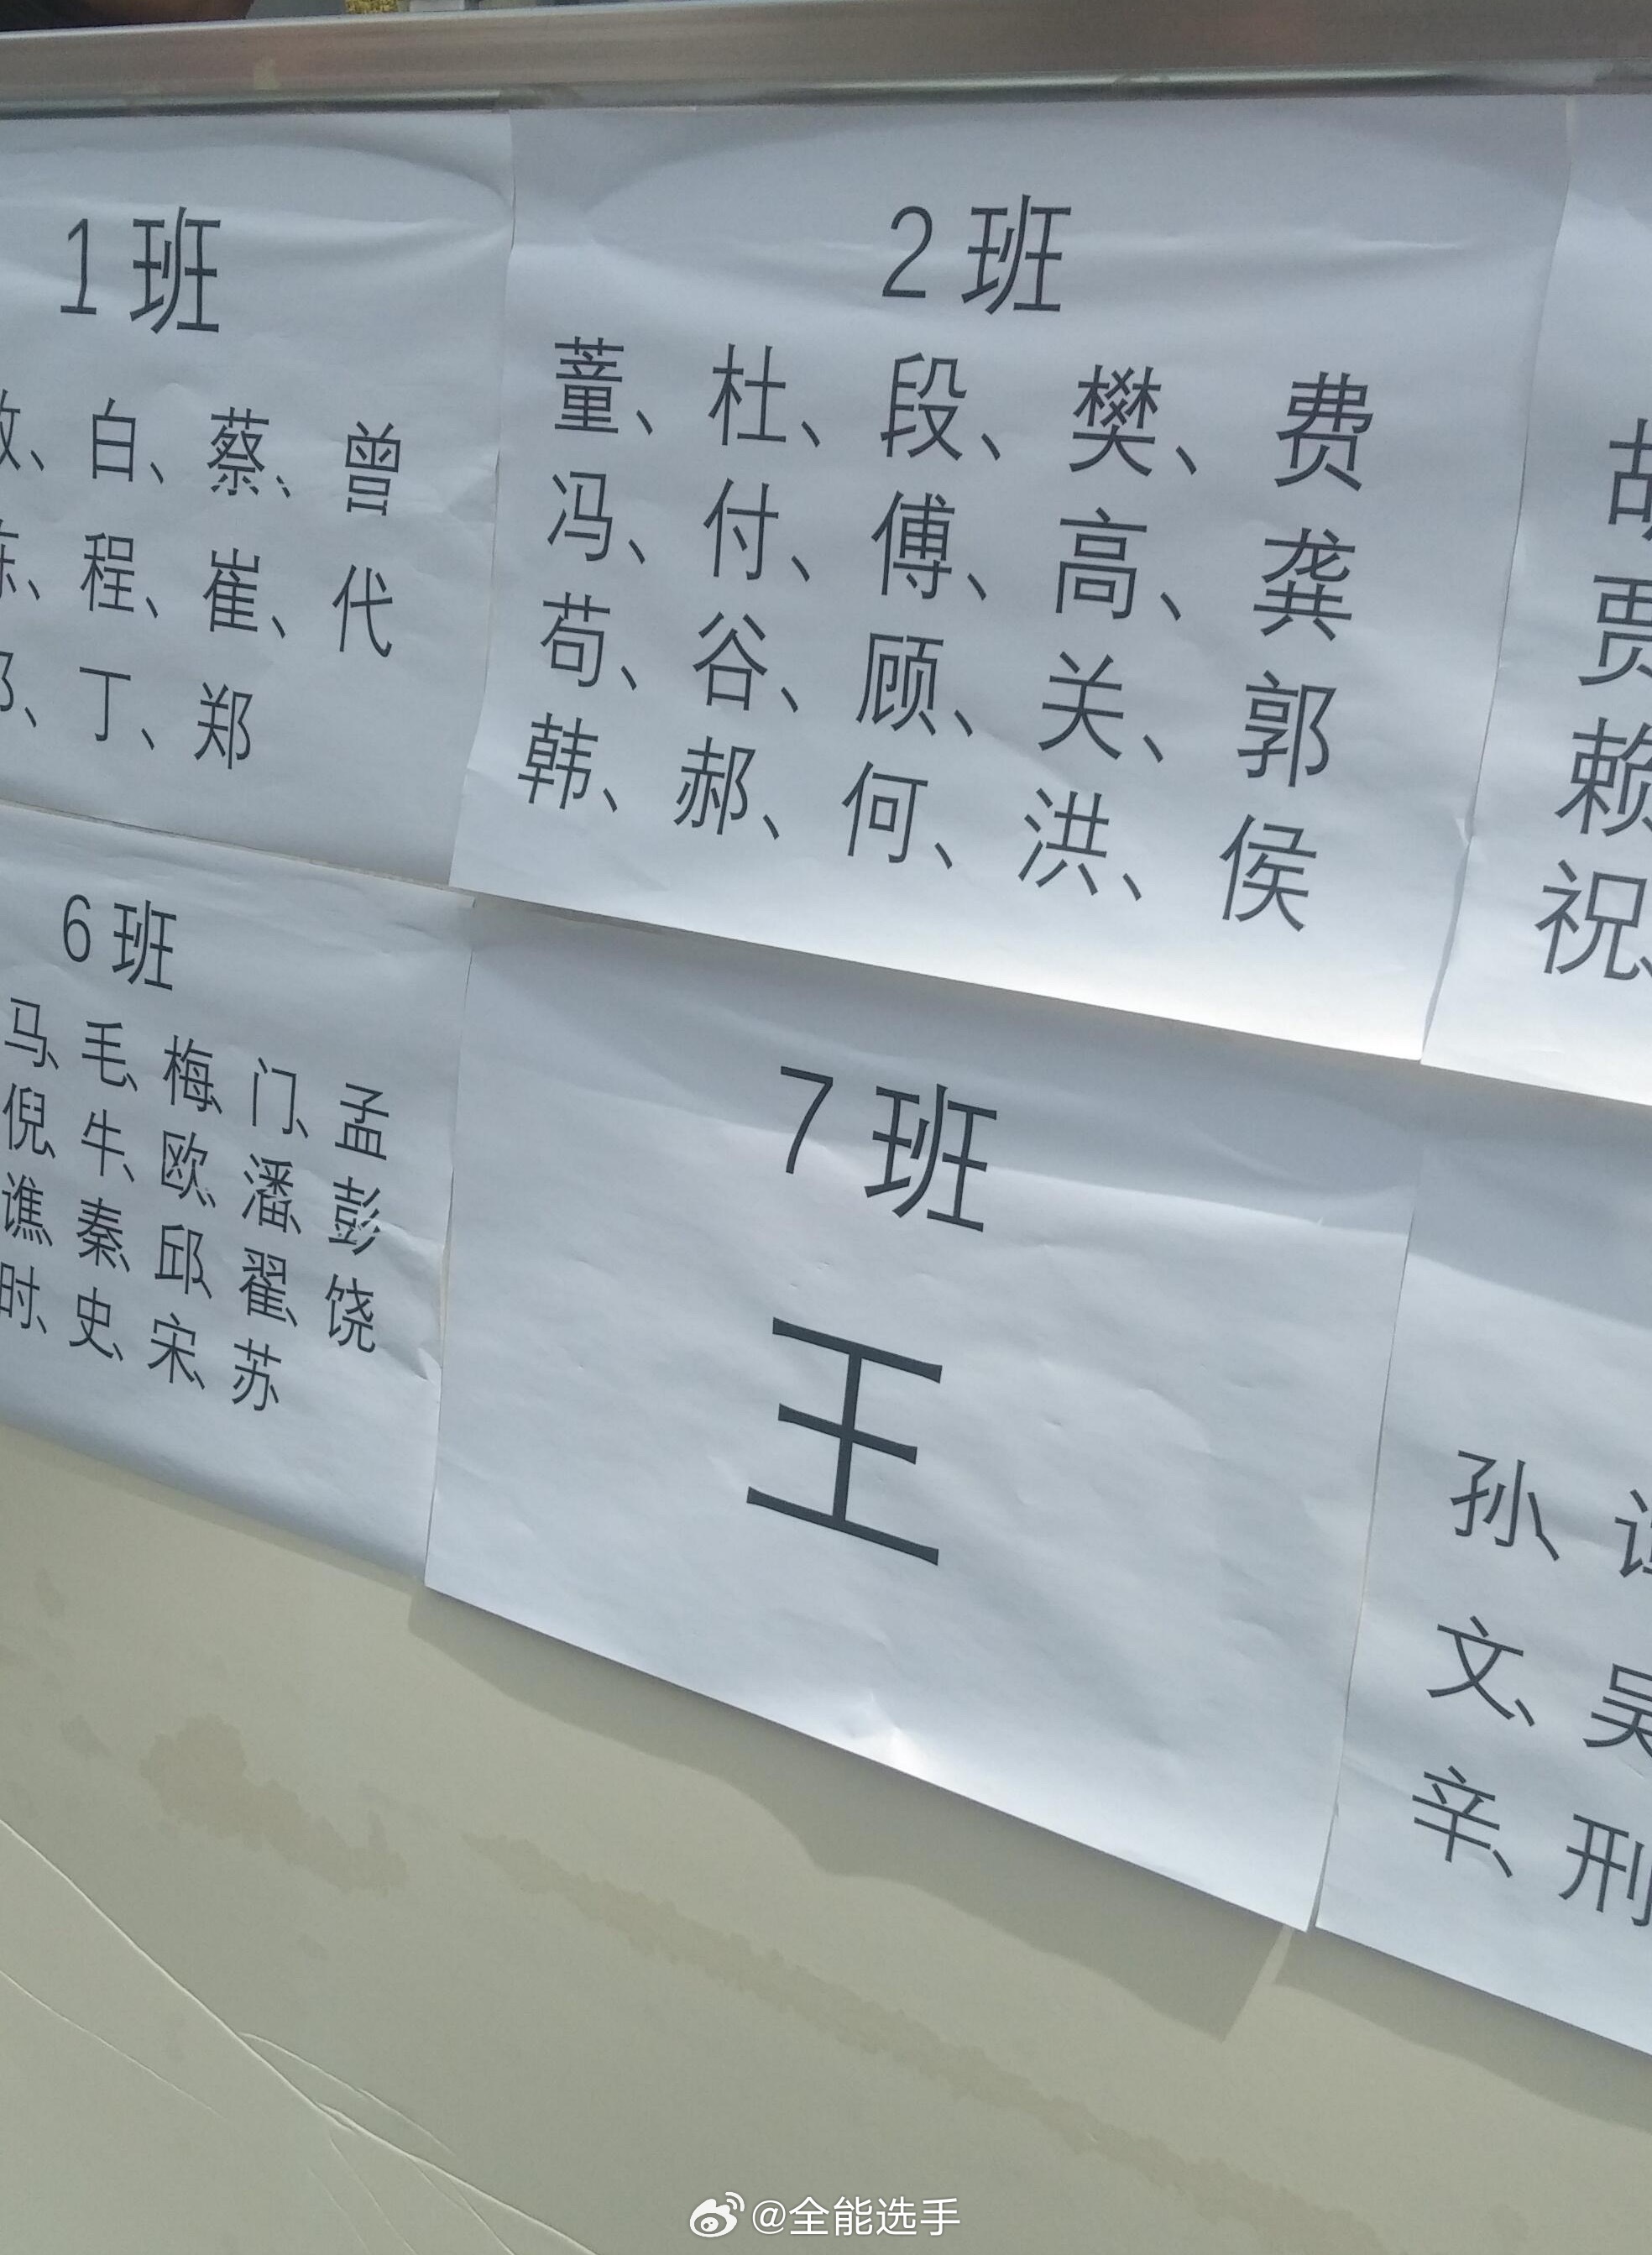 1班
白、蔡、曾
程、崔、代
丁、郑
2班
董、杜、段、樊、费
冯、付、傅、高、龚
苟、谷、顾、关、郭
韩、郝、何、洪、侯
贾
赖
祝、
6班
马、毛、梅、门、孟
倪、牛、欧、潘、彭
谯、秦、邱、翟、饶
时、史、宋、苏
7班
王
孙、
文、吴
辛、刑
@全能选手